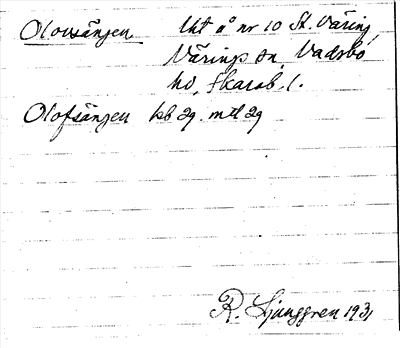 Olovsängen lht å nr 10 St. Väring,
Värings sn, Vadsbo
hd, Skarab. l.
Olofsängen kb 29. mtl 29
R. Ljunggren 1931